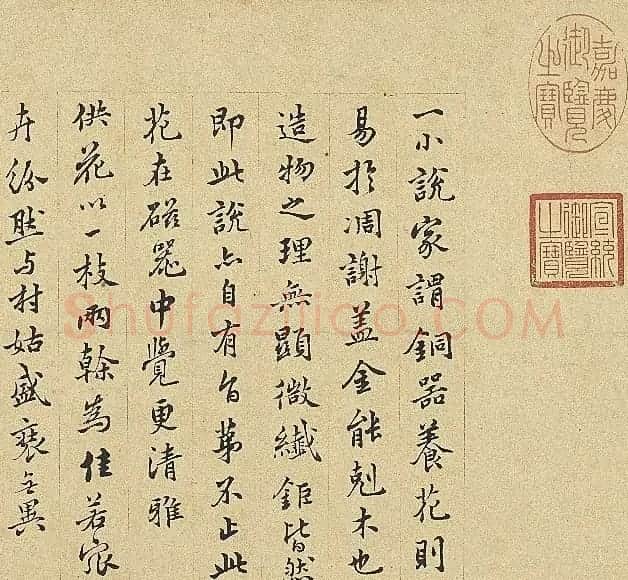 嘉慶御覽之寶
宣統御覽之寶
一小說家謂銅器養花則
易於凋謝蓋金能剋木也
造物之理無顯微纖鉅皆然
即此說亦自有旨第不止此
花在磁器中覺更清雅
供花以一枝兩榦為佳若眾
卉紛然与村姑盛無異
Shufaziliao.COM